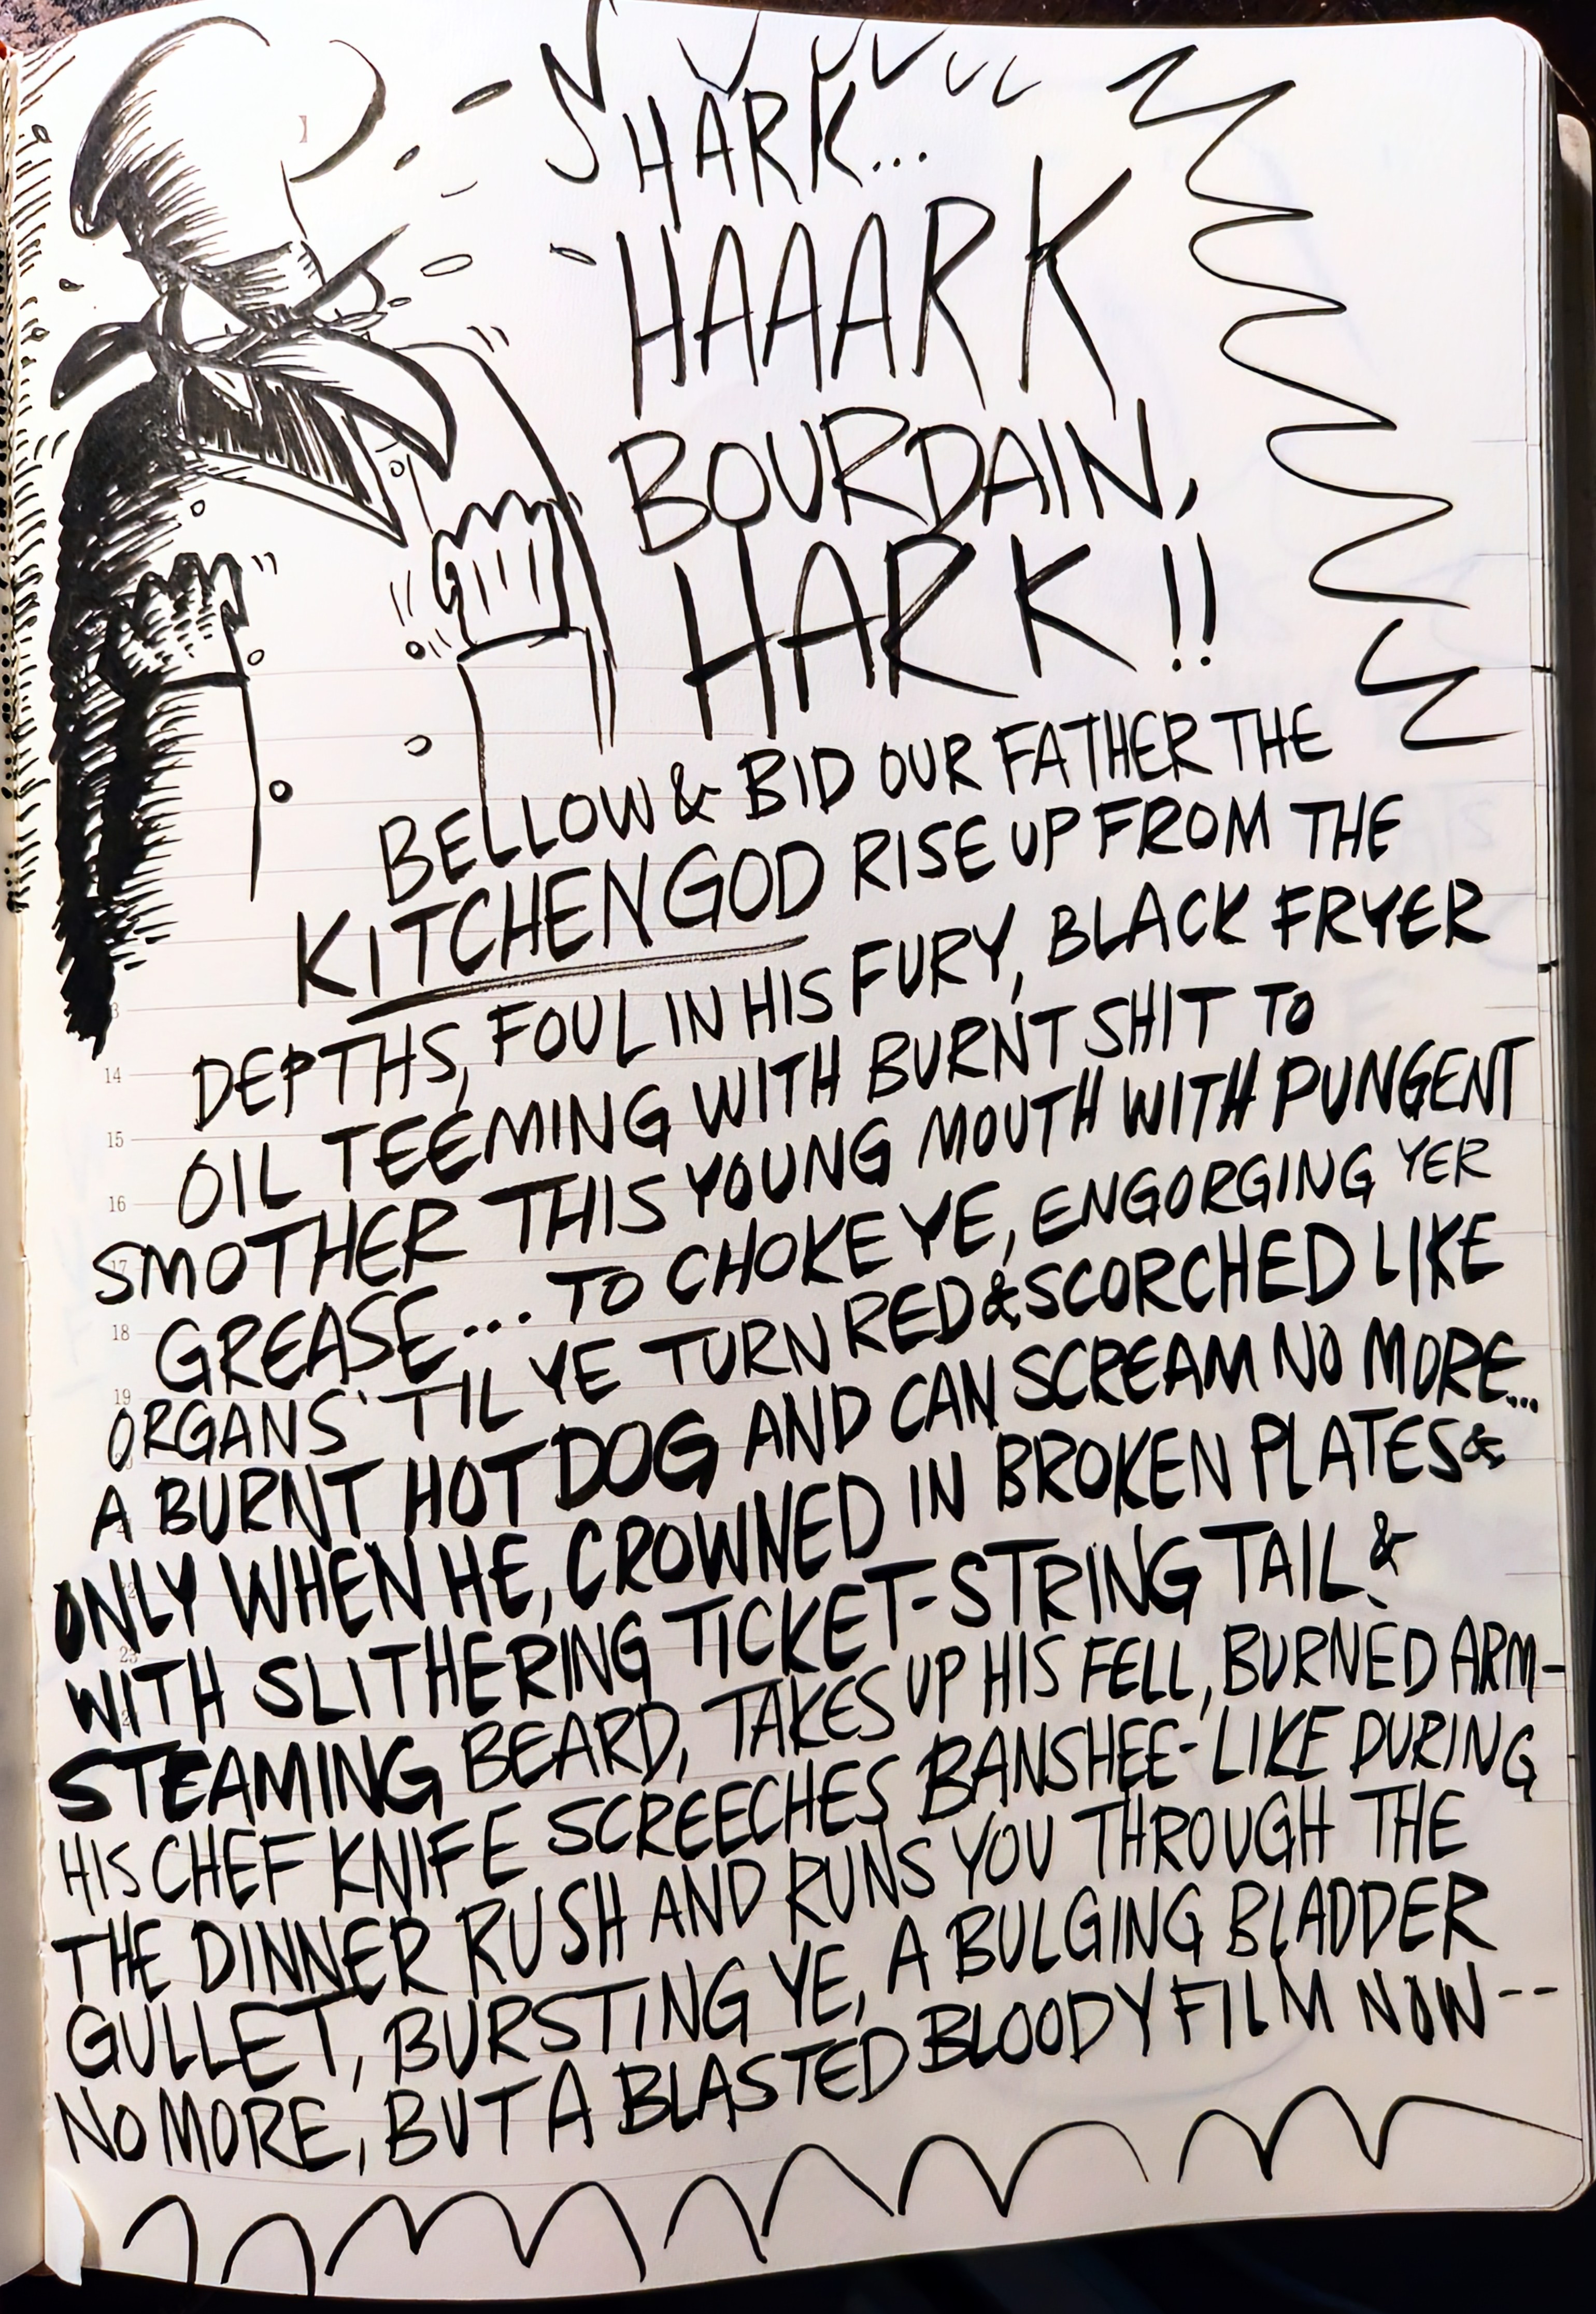 HARK...
HAAARK
BOURDAIN,
HARK!!
BELLOW & BID OUR FATHER THE
KITCHEN GOD RISE UP FROM THE
DEPTHS, FOUL IN HIS FURY, BLACK FRYER
14
OIL TEEMING WITH BURNT SHIT TO
15
SMOTHER THIS YOUNG MOUTH WITH PUNGENT
16
GREASE... TO CHOKE YE, ENGORGING YER
17
18
ORGANS 'TIL YE TURN RED & SCORCHED LIKE
19
A BURNT HOT DOG AND CAN SCREAM NO MORE...
ONLY WHEN HE, CROWNED IN BROKEN PLATES &
WITH SLITHERING TICKET-STRING TAIL &
23
STEAMING BEARD, TAKES UP HIS FELL, BURNED ARM-
HIS CHEF KNIFE SCREECHES BANSHEE-LIKE DURING
THE DINNER RUSH AND RUNS YOU THROUGH THE
GULLET, BURSTING YE, A BULGING BLADDER
NO MORE, BUT A BLASTED BLOODY FILM NOW--